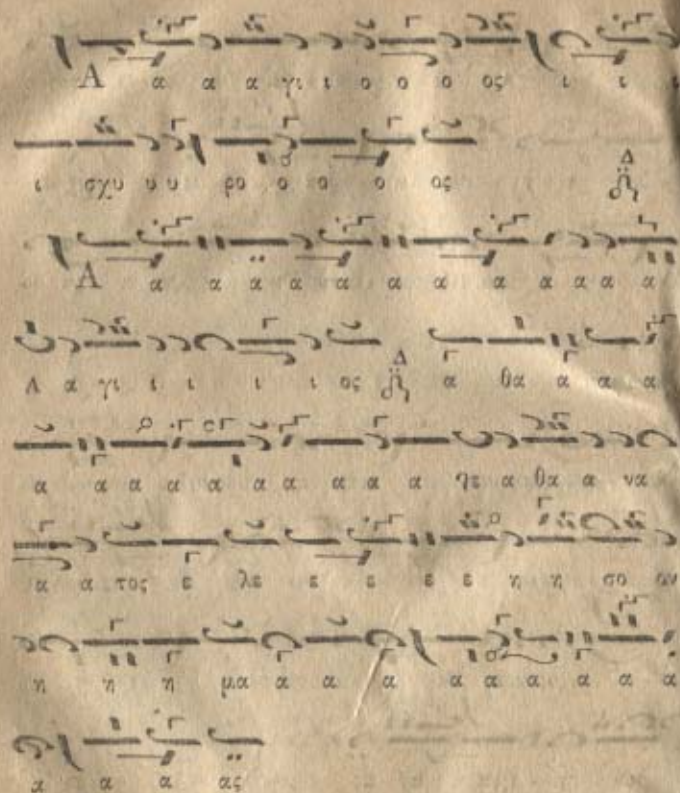 Α α α α γι ι ο ο ο ος ι ι ι
ι σχυ υ υ ρο ο ο ο ος Δ
Α α α α α α α α α α α α α
Α α γι ι ι ι ι ος Δ α θα α α α
α α α α α α α α α λε α θα α να
α α τος ε λε ε ε ε ε η η σο ον
η η η μα α α α α α α α α α
α α α ας